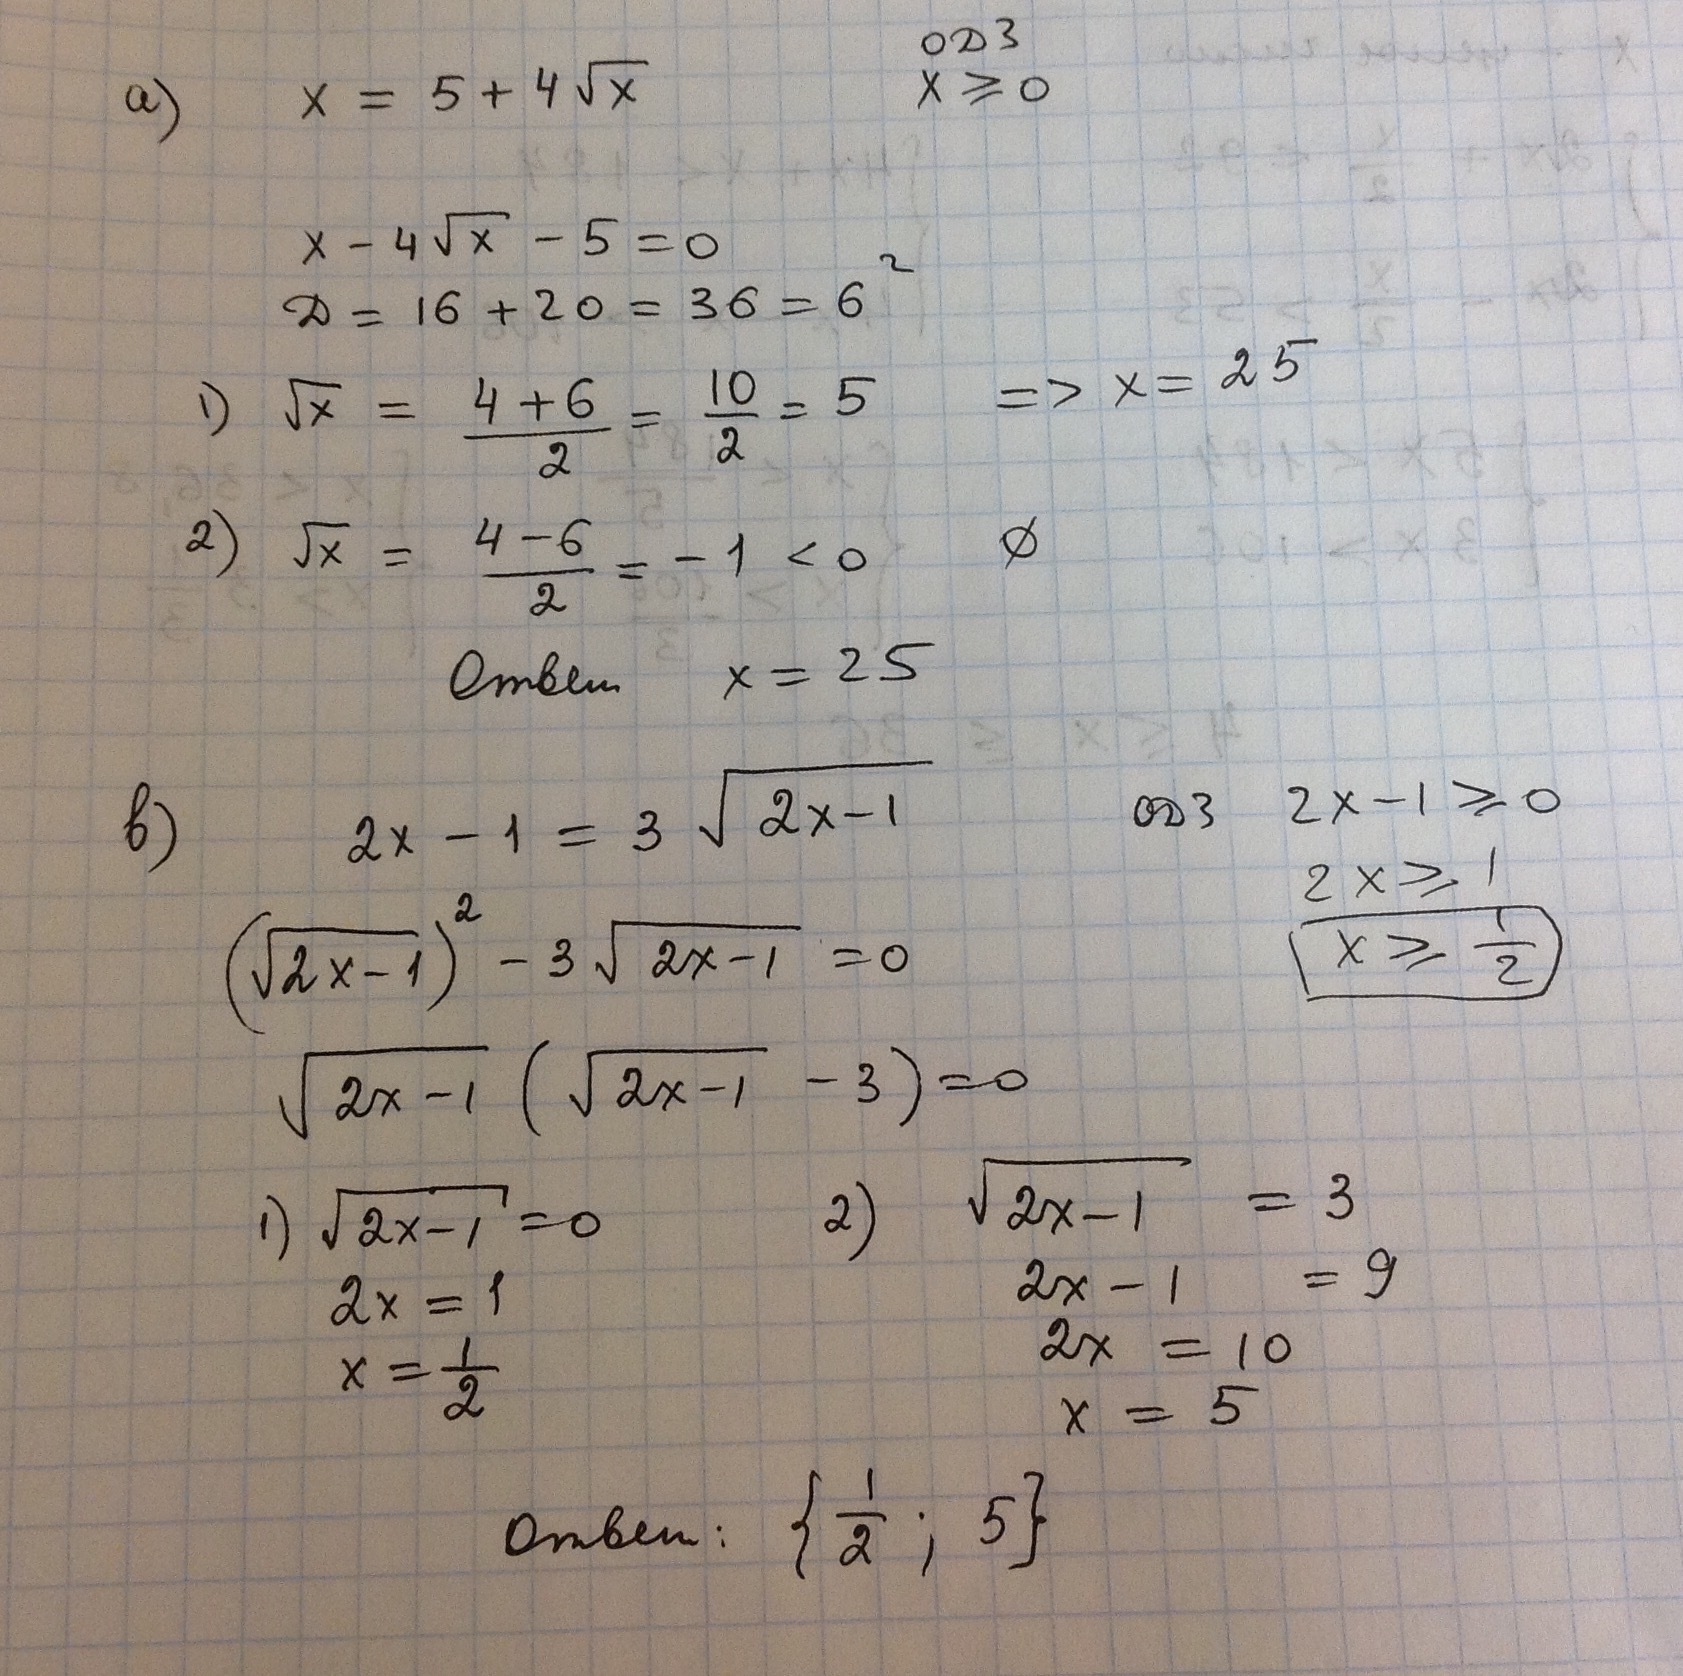 а) x = 5 + 4√x ОДЗ
x ≥ 0
x - 4√x - 5 = 0
D = 16 + 20 = 36 = 6²
1) √x = (4+6)/2 = 10/2 = 5 => x = 25
2) √x = (4-6)/2 = -1 < 0 ∅
Ответ x = 25
в) 2x - 1 = 3√(2x-1) ОДЗ 2x-1 ≥ 0
2x ≥ 1
x ≥ 1/2
(√(2x-1))² - 3√(2x-1) = 0
√(2x-1) (√(2x-1) - 3) = 0
1) √(2x-1) = 0 2) √(2x-1) = 3
2x = 1 2x - 1 = 9
x = 1/2 2x = 10
x = 5
Ответ: {1/2 ; 5}